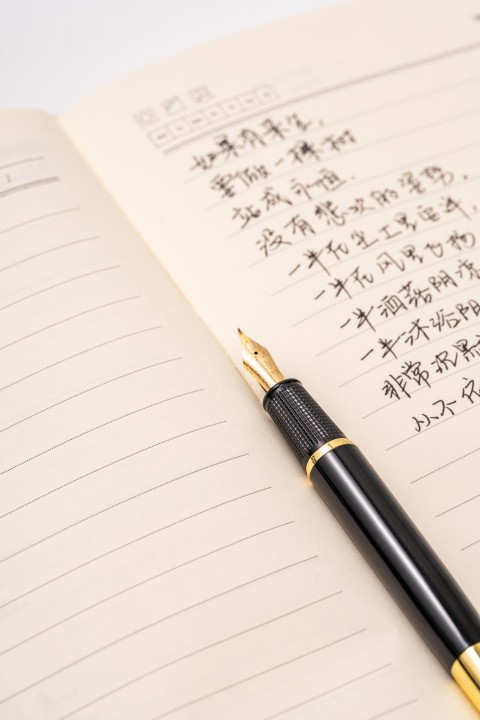 如果有来生,
要做一棵树
站成永恒.
没有悲欢的姿势.
一半在尘土里安详,
一半在风里飞扬
一半洒落阴凉
一半沐浴阳
非常沉默
从不依